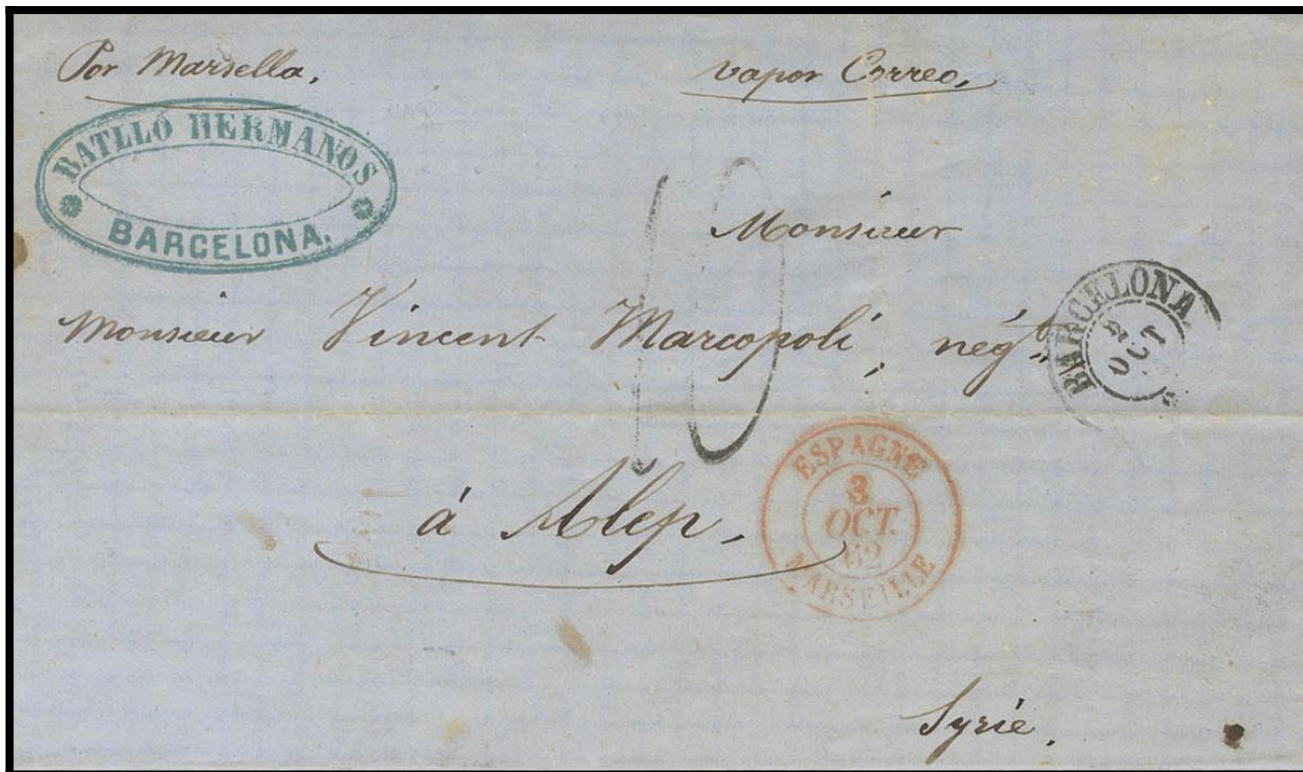 Por Marsella,
vapor Correo,
BATLLÓ HERMANOS
BARCELONA.
10
Monsieur
Monsieur Vincent Marcopoli, négt.
BARCELONA
2
OCT
à Alep,
ESPAGNE
3
OCT.
62
MARSEILLE
Syrie.